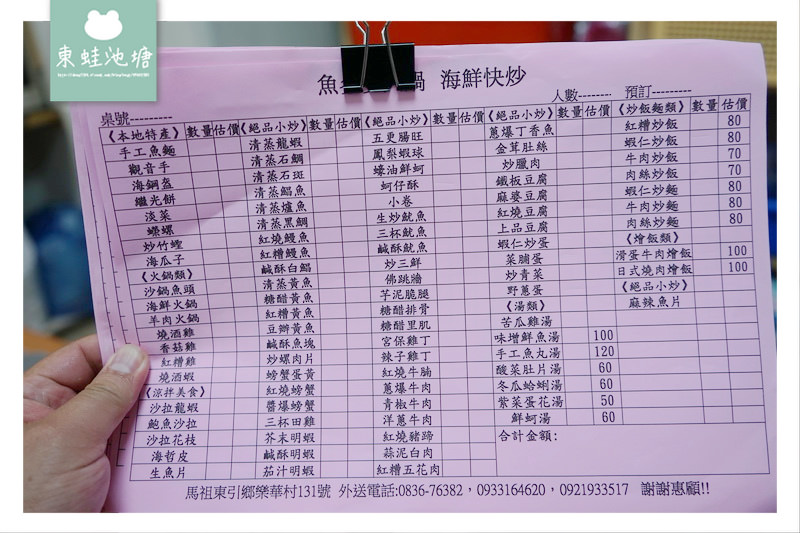 東蛙池塘
魚 鍋 海鮮快炒
桌號--------- 人數-------- 預訂---------
《本地特產》 數量 估價 《絕品小炒》 數量 估價 《絕品小炒》 數量 估價 《絕品小炒》 數量 估價 《炒飯麵類》 數量 估價
手工魚麵 清蒸龍蝦 五更腸旺 蔥爆丁香魚 紅糟炒飯 80
觀音手 清蒸石鯛 鳳梨蝦球 金茸肚絲 蝦仁炒飯 80
海鋼盔 清蒸石斑 蠔油鮮蚵 炒臘肉 牛肉炒飯 70
繼光餅 清蒸鯧魚 蚵仔酥 鐵板豆腐 肉絲炒飯 70
淡菜 清蒸爐魚 小卷 麻婆豆腐 蝦仁炒麵 80
蠑螺 清蒸黑鯛 生炒魷魚 紅燒豆腐 牛肉炒麵 80
炒竹蟶 紅燒鰻魚 三杯魷魚 上品豆腐 肉絲炒麵 80
海瓜子 紅糟鰻魚 鹹酥魷魚 蝦仁炒蛋 《燴飯類》
《火鍋類》 鹹酥白鯧 炒三鮮 菜脯蛋 滑蛋牛肉燴飯 100
沙鍋魚頭 清蒸黃魚 佛跳牆 炒青菜 日式燒肉燴飯 100
海鮮火鍋 糖醋黃魚 芋泥脆腿 野蔥蛋 《絕品小炒》
羊肉火鍋 紅糟黃魚 糖醋排骨 《湯類》 麻辣魚片
燒酒雞 豆瓣黃魚 糖醋里肌 苦瓜雞湯
香菇雞 鹹酥魚塊 宮保雞丁 味增鮮魚湯 100
紅糟雞 炒螺肉片 辣子雞丁 手工魚丸湯 120
燒酒蝦 螃蟹蛋黃 紅燒牛腩 酸菜肚片湯 60
《涼拌美食》 紅燒螃蟹 蔥爆牛肉 冬瓜蛤蜊湯 60
沙拉龍蝦 醬爆螃蟹 青椒牛肉 紫菜蛋花湯 50
鮑魚沙拉 三杯田雞 洋蔥牛肉 鮮蚵湯 60
沙拉花枝 芥末明蝦 紅燒豬蹄 合計金額:
海哲皮 鹹酥明蝦 蒜泥白肉
生魚片 茄汁明蝦 紅糟五花肉
馬祖東引鄉樂華村131號 外送電話:0836-76382，0933164620，0921933517 謝謝惠顧!!